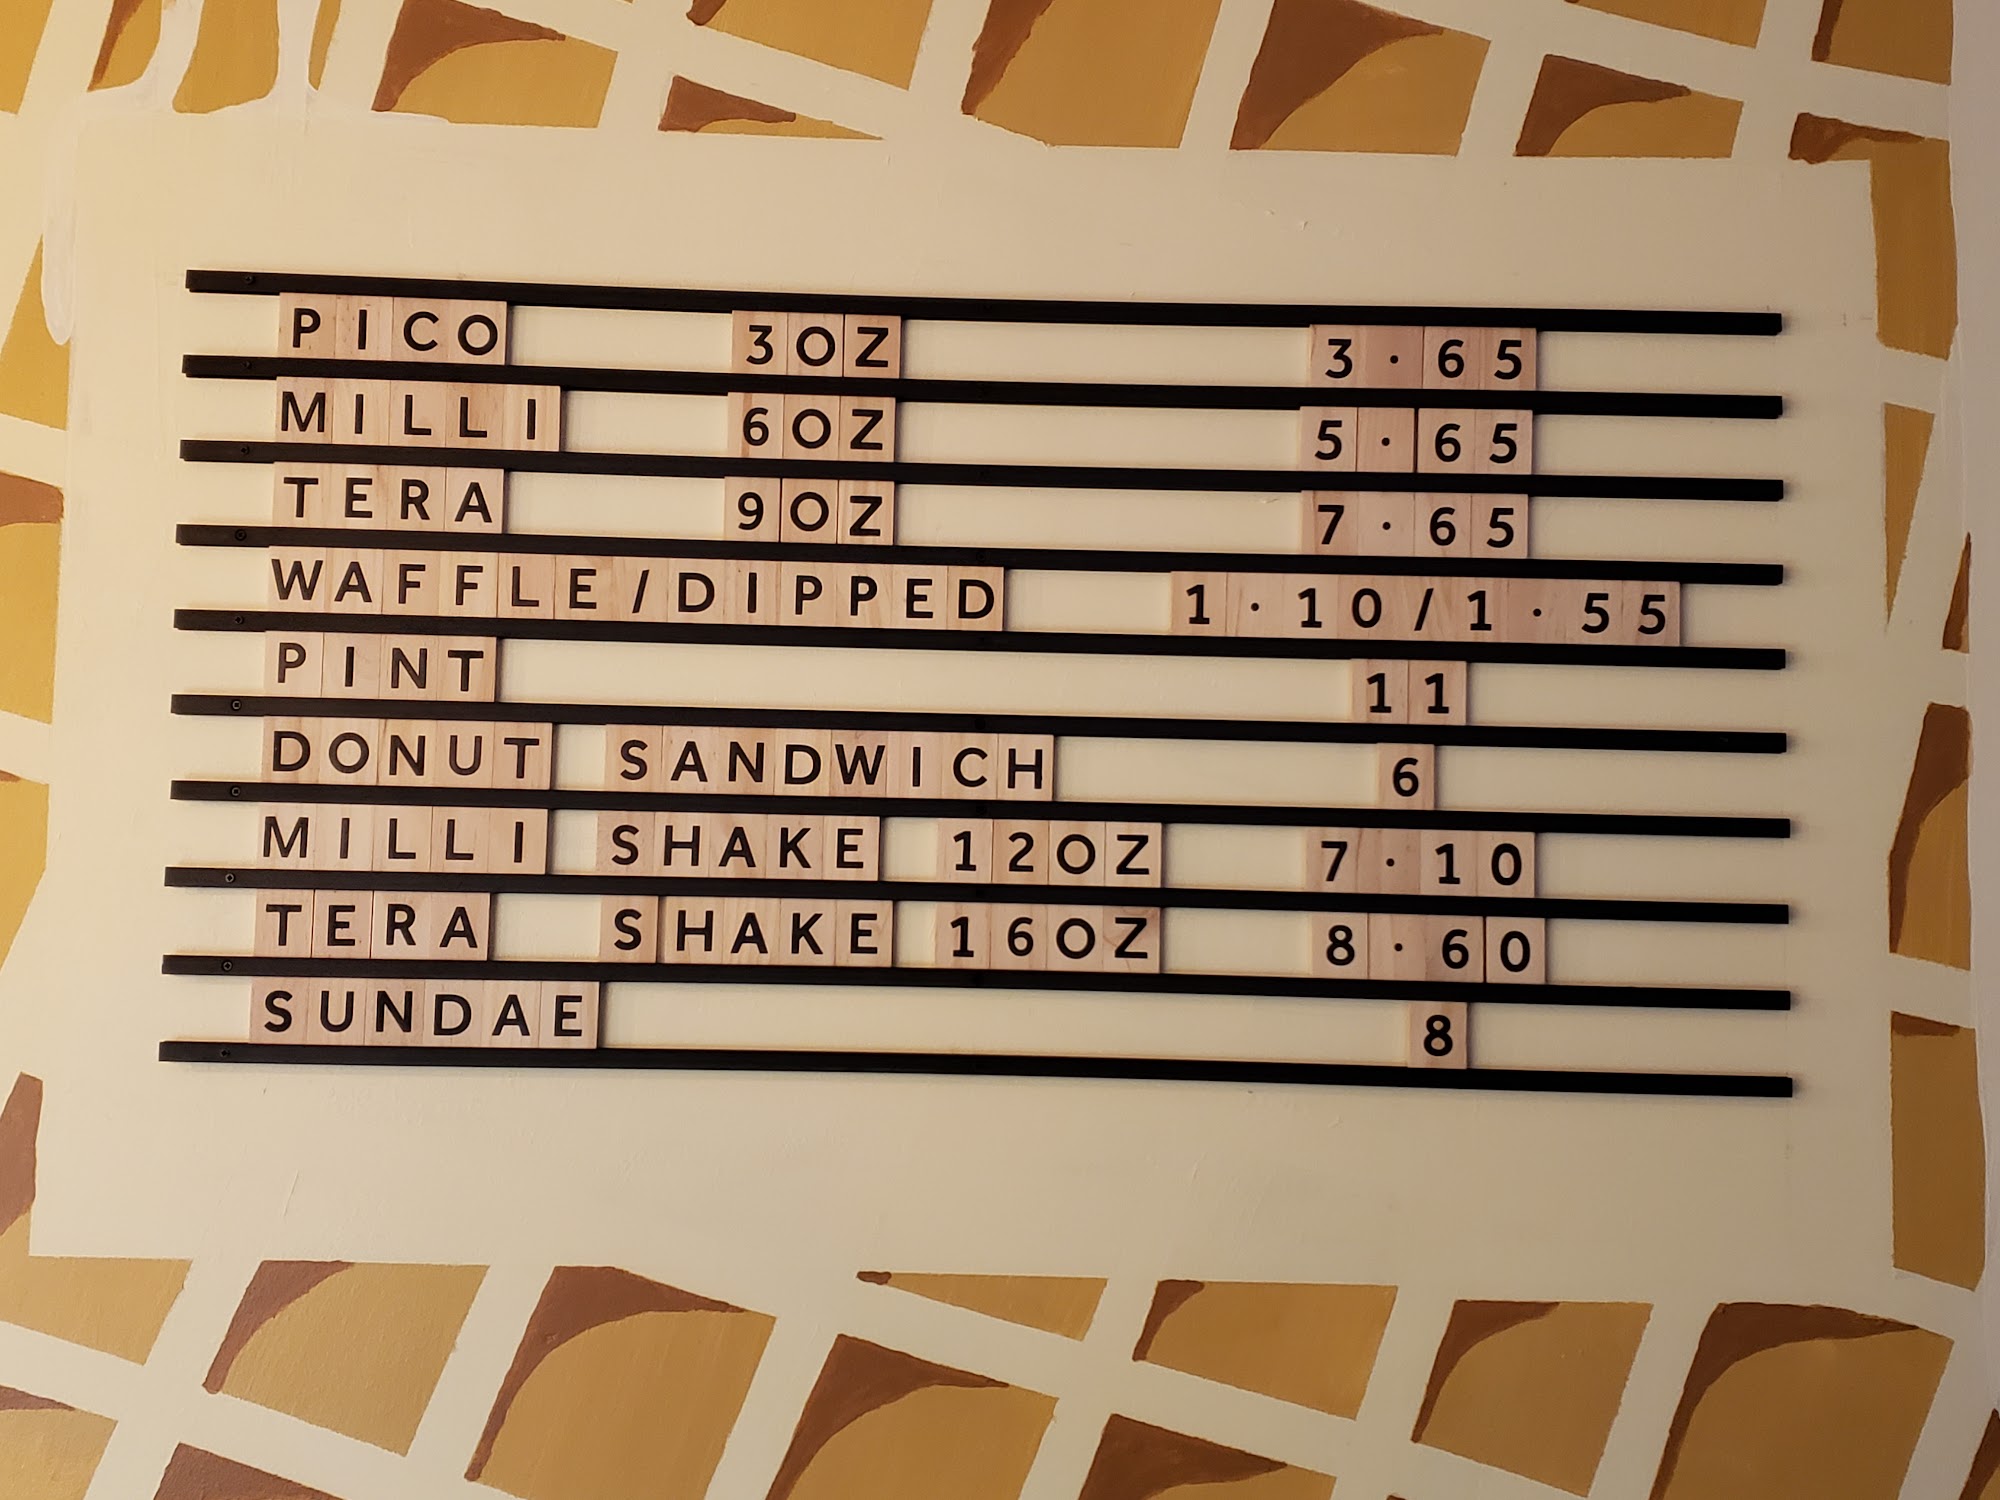 PICO 3OZ 3·65
MILLI 6OZ 5·65
TERA 9OZ 7·65
WAFFLE/DIPPED 1·10/1·55
PINT 11
DONUT SANDWICH 6
MILLI SHAKE 12OZ 7·10
TERA SHAKE 16OZ 8·60
SUNDAE 8